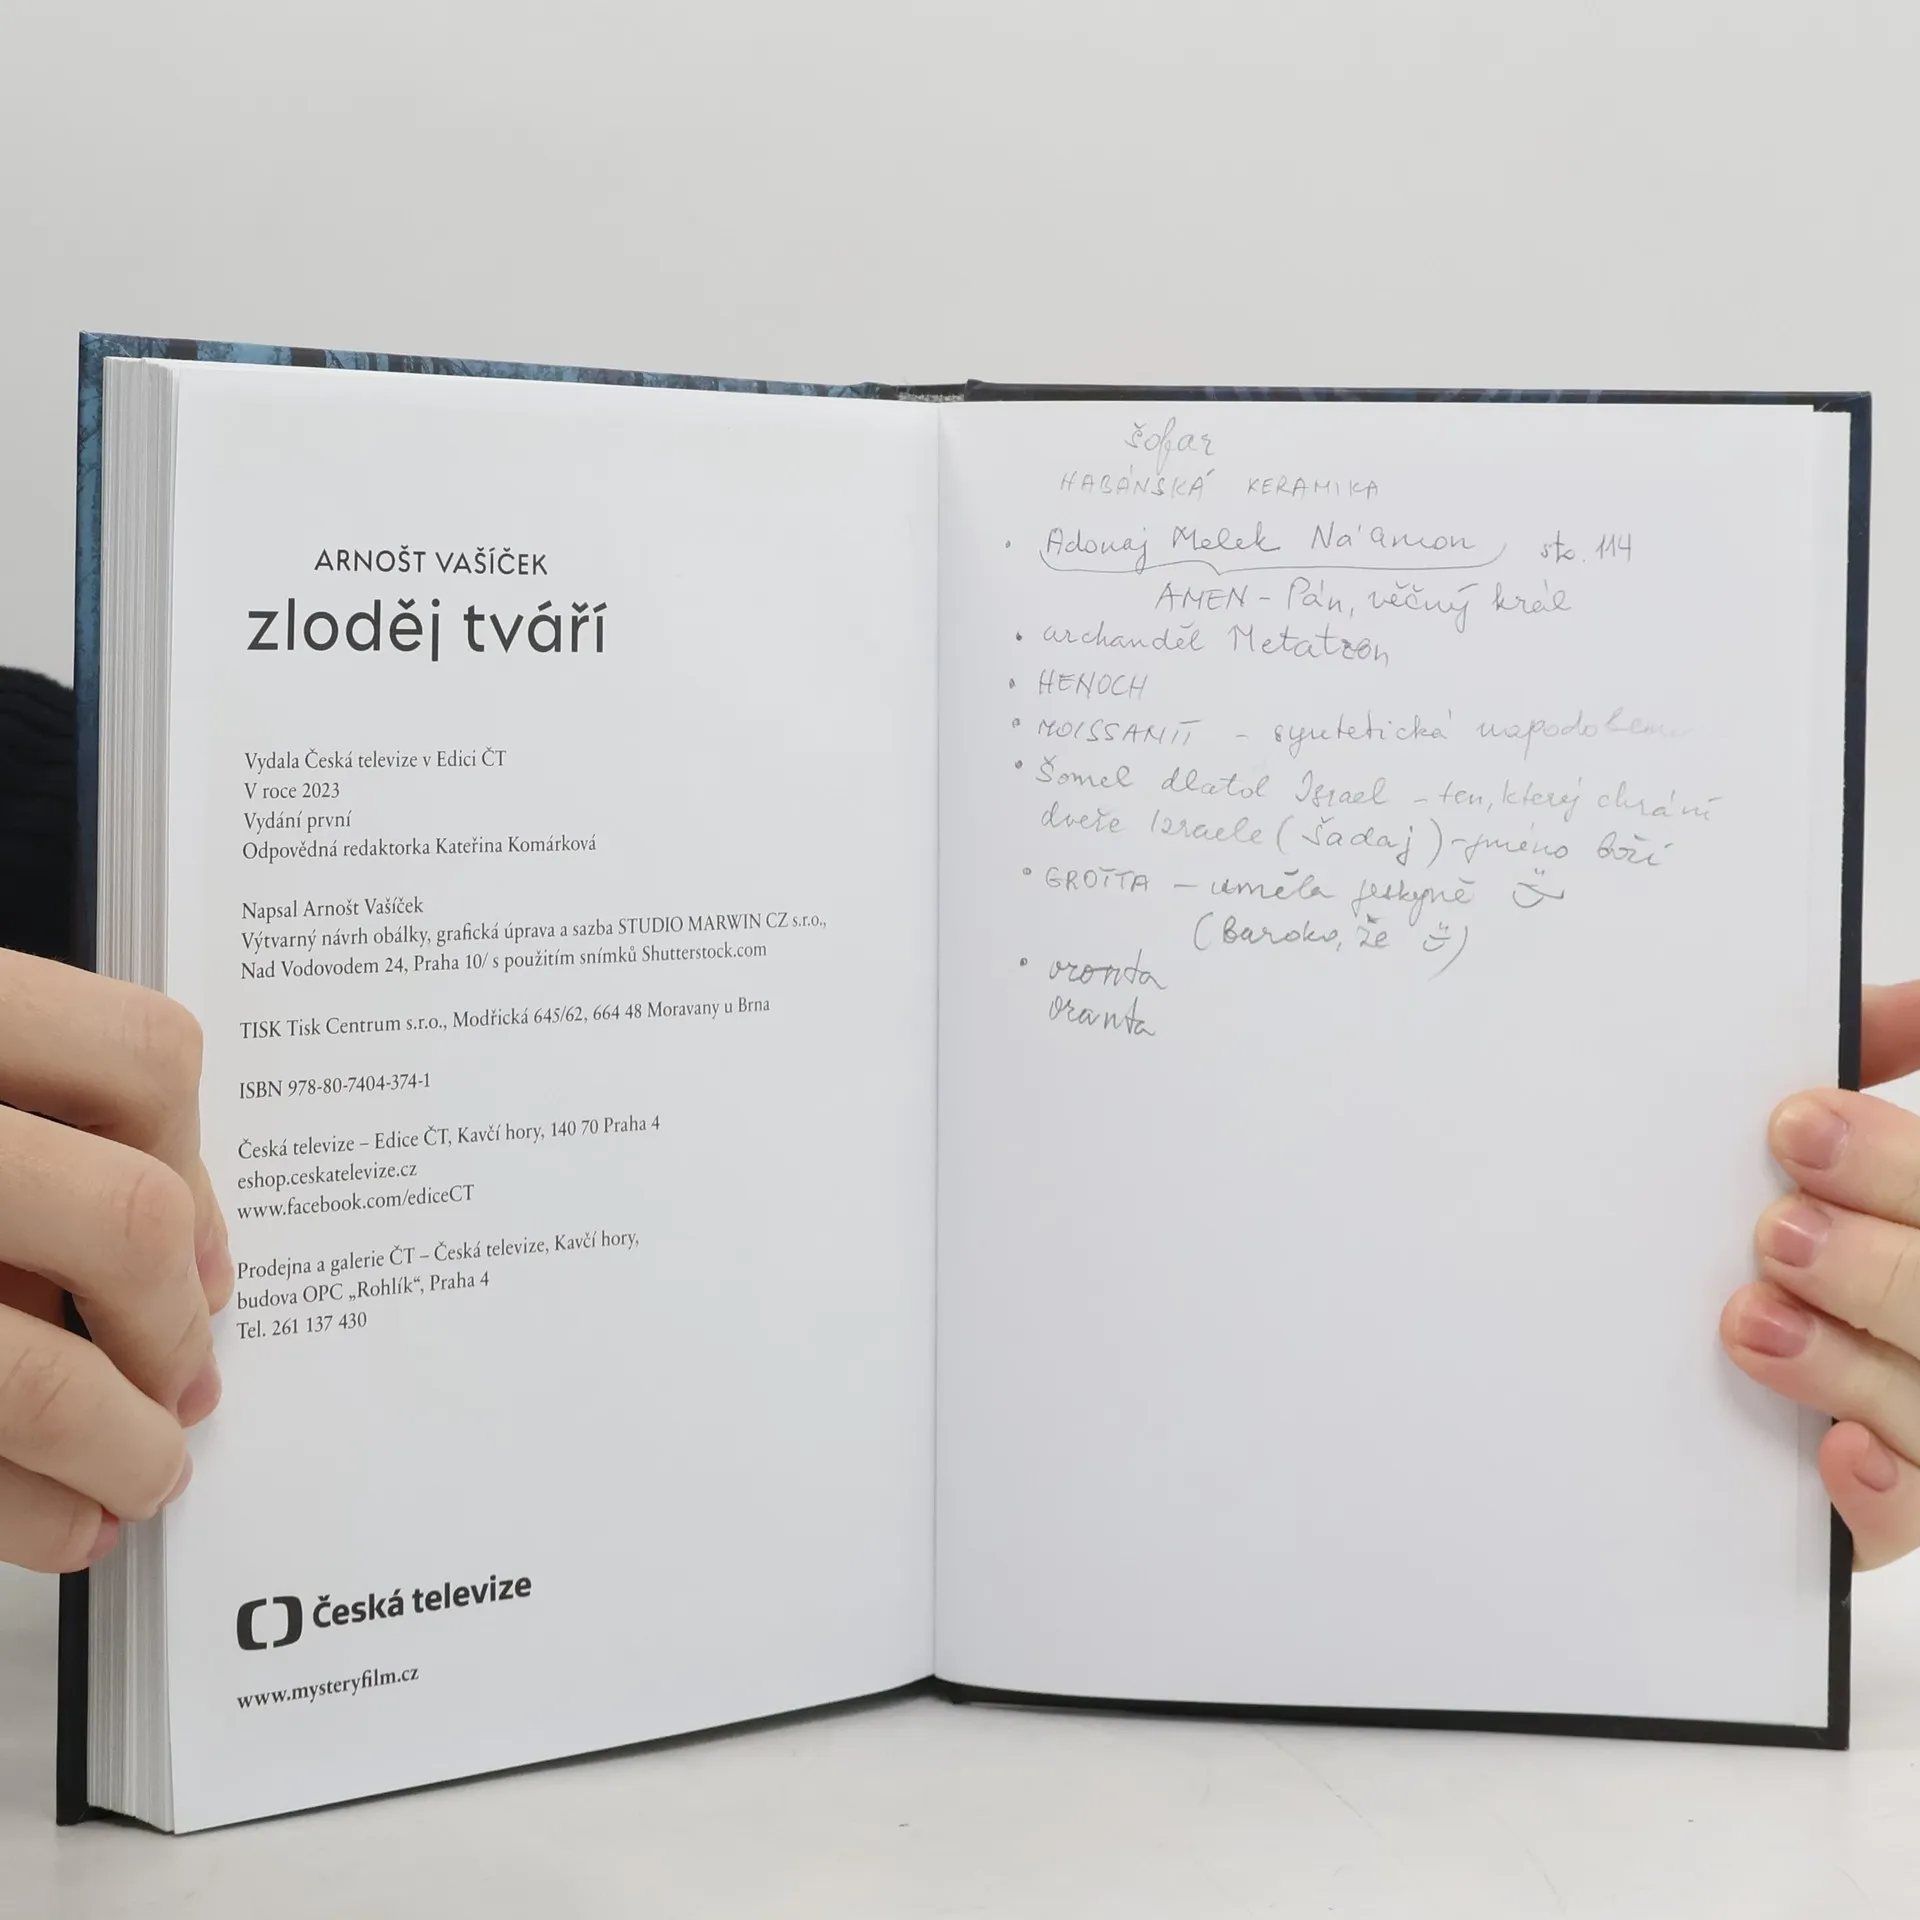 ARNOŠT VAŠÍČEK
zloděj tváří
Vydala Česká televize v Edici ČT
V roce 2023
Vydání první
Odpovědná redaktorka Kateřina Komárková
Napsal Arnošt Vašíček
Výtvarný návrh obálky, grafická úprava a sazba STUDIO MARWIN CZ s.r.o.,
Nad Vodovodem 24, Praha 10/ s použitím snímků Shutterstock.com
TISK Tisk Centrum s.r.o., Modřická 645/62, 664 48 Moravany u Brna
ISBN 978-80-7404-374-1
Česká televize – Edice ČT, Kavčí hory, 140 70 Praha 4
eshop.ceskatelevize.cz
www.facebook.com/ediceCT
Prodejna a galerie ČT – Česká televize, Kavčí hory,
budova OPC „Rohlík“, Praha 4
Tel. 261 137 430
Česká televize
www.mysteryfilm.cz
šofar
HABÁNSKÁ KERAMIKA
• Adonaj Melek Na'amon str. 114
AMEN - Pán, věčný král
• archanděl Metatron
• HENOCH
• MOISSANIT - syntetická
• Šomel dlatol Israel - ten, který chrání
dveře Izraele (Šadaj) - jméno boží
• GROTTA - uměla jeskyně
(Baroko, že )
• oronta
oranta